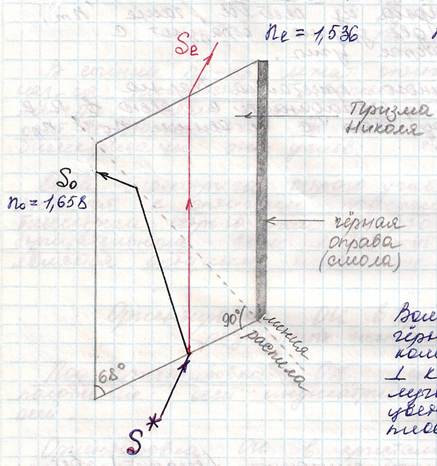 Se
ne = 1,536
Призма
Николя
So
no = 1,658
чёрная
оправа
(смола)
90°
линия
распила
68°
S
чёрн
1 к
луч
цвет